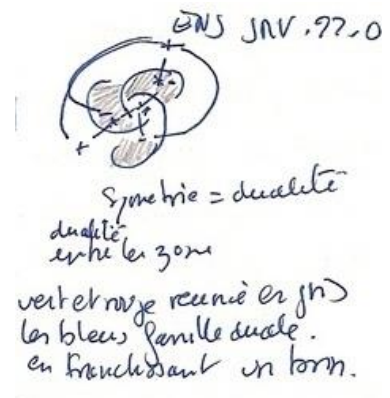 ENS JAV.99.0
symetrie = dualité
dualité
entre les zone
vert et rouge reunie en gris
les bleus famille duale.
en franchissant un born.